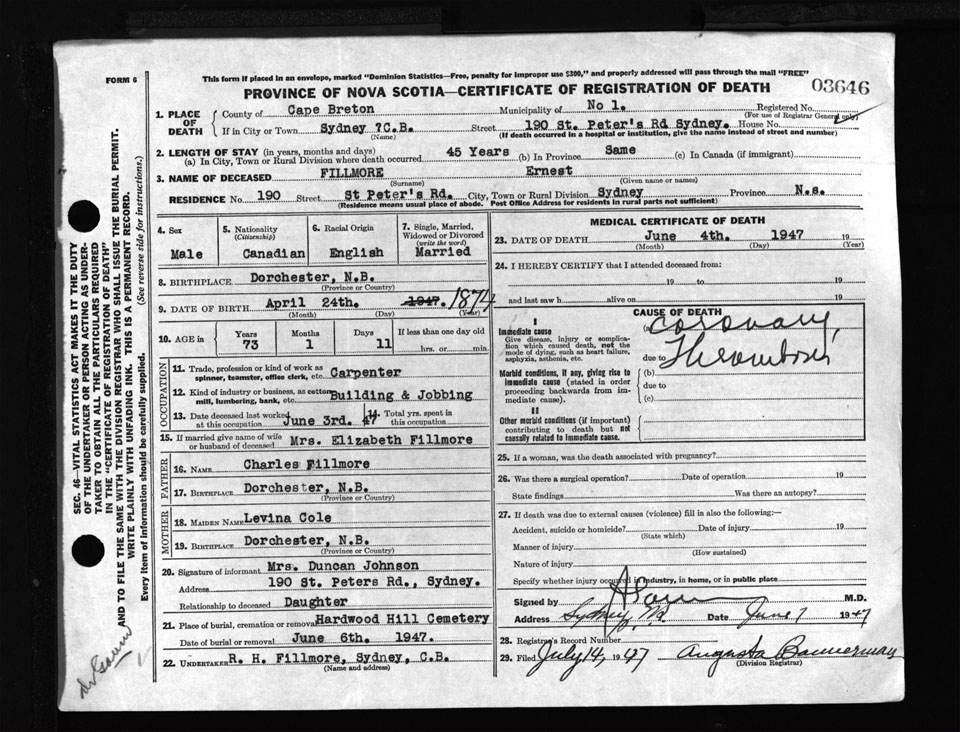 FORM 6
This form if placed in an envelope, marked "Dominion Statistics—Free, penalty for improper use $300," and properly addressed will pass through the mail "FREE"
PROVINCE OF NOVA SCOTIA—CERTIFICATE OF REGISTRATION OF DEATH
03646
1. PLACE OF DEATH
County of Cape Breton Municipality of No 1. Registered No.
(For use of Registrar General only)
If in City or Town Sydney ?C.B. Street 190 St. Peter's Rd Sydney. House No.
(Name) (If death occurred in a hospital or institution, give the name instead of street and number)
2. LENGTH OF STAY (in years, months and days)
(a) In City, Town or Rural Division where death occurred 45 Years (b) In Province Same (c) In Canada (if immigrant)
3. NAME OF DECEASED FILLMORE Ernest
(Surname) (Given name or names)
RESIDENCE No. 190 Street St Peter's Rd. City, Town or Rural Division Sydney Province N.s.
(Residence means usual place of abode. Post Office Address for residents in rural parts not sufficient)
4. Sex Male
5. Nationality (Citizenship) Canadian
6. Racial Origin English
7. Single, Married, Widowed or Divorced (write the word) Married
8. BIRTHPLACE Dorchester, N.B.
(Province or Country)
9. DATE OF BIRTH April 24th. 1947. 1874
(Month) (Day) (Year)
10. AGE in Years 73 Months 1 Days 11 If less than one day old hrs. or min.
OCCUPATION
11. Trade, profession or kind of work as spinner, teamster, office clerk, etc. Carpenter
12. Kind of industry or business, as cotton mill, lumbering, bank, etc. Building & Jobbing
13. Date deceased last worked at this occupation June 3rd. 47 14. Total yrs. spent in this occupation
15. If married give name of wife or husband of deceased Mrs. Elizabeth Fillmore
FATHER
16. NAME Charles Fillmore
17. BIRTHPLACE Dorchester, N.B.
(Province or Country)
MOTHER
18. MAIDEN NAME Levina Cole
19. BIRTHPLACE Dorchester, N.B.
(Province or Country)
20. Signature of informant Mrs. Duncan Johnson
Address 190 St. Peters Rd., Sydney.
Relationship to deceased Daughter
21. Place of burial, cremation or removal Hardwood Hill Cemetery
Date of burial or removal June 6th. 1947.
22. UNDERTAKER R. H. Fillmore, Sydney, C.B.
(Name and address)
MEDICAL CERTIFICATE OF DEATH
23. DATE OF DEATH June 4th. 1947 19
(Month) (Day) (Year)
24. I HEREBY CERTIFY that I attended deceased from:
19 to 19
and last saw h alive on 19
CAUSE OF DEATH
I
Immediate cause
Give disease, injury or complication which caused death, not the mode of dying, such as heart failure, asphyxia, asthenia, etc.
(a) Coronary
due to Thrombosis
Morbid conditions, if any, giving rise to immediate cause (stated in order proceeding backwards from immediate cause).
(b)
due to
(c)
II
Other morbid conditions (if important) contributing to death but not causally related to immediate cause.
25. If a woman, was the death associated with pregnancy?
26. Was there a surgical operation? Date of operation 19
State findings Was there an autopsy?
27. If death was due to external causes (violence) fill in also the following:—
Accident, suicide or homicide? Date of injury 19
(State which)
Manner of injury
(How sustained)
Nature of injury
Specify whether injury occurred in industry, in home, or in public place
Signed by M.D.
Address Sydney Date June 7 1947
28. Registrar's Record Number
29. Filed July 14, 1947 Augusta Bannerman
(Division Registrar)
SEC. 46—VITAL STATISTICS ACT MAKES IT THE DUTY
OF THE UNDERTAKER OR PERSON ACTING AS UNDER-
TAKER TO OBTAIN ALL THE PARTICULARS REQUIRED
IN THE "CERTIFICATE OF REGISTRATION OF DEATH"
AND TO FILE THE SAME WITH THE DIVISION REGISTRAR WHO SHALL ISSUE THE BURIAL PERMIT.
WRITE PLAINLY WITH UNFADING INK. THIS IS A PERMANENT RECORD.
Every item of information should be carefully supplied. (See reverse side for instructions.)